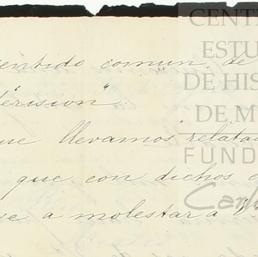 sentido comun. de
derision"
que llevamos relata
que con dichos
se a molestar a V.
CENT
ESTU
DE HIS
DE M
FUND
Carl